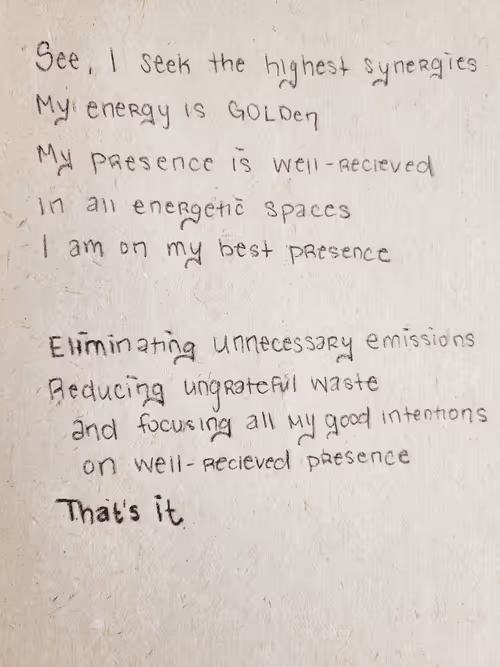 See, I seek the highest synergies
My energy is GOLDen
My presence is well-recieved
in all energetic spaces
I am on my best presence
Eliminating unnecessary emissions
Reducing ungrateful waste
and focusing all my good intentions
on well-recieved presence
That's it